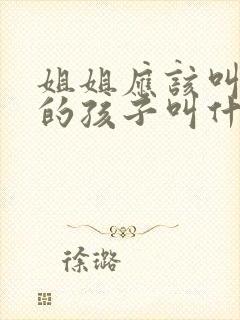 姐姐應該叫
的孩子叫什
徐璐